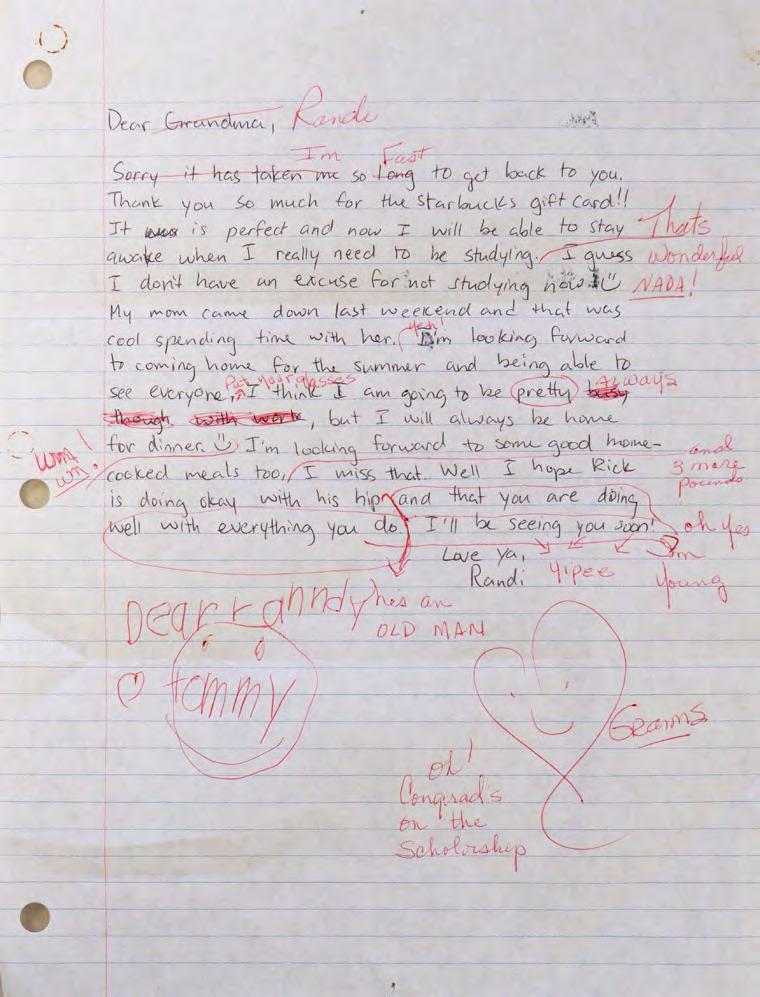 Dear Grandma, Randi
I'm Fast
Sorry it has taken me so long to get back to you.
Thank you so much for the Starbucks gift card!!
It was is perfect and now I will be able to stay Thats
awake when I really need to be studying. I guess Wonderful
I don't have an excuse for not studying now! NADA!
My mom came down last weekend and that was
cool spending time with her. Yeh! I'm looking forward
to coming home for the summer and being able to
Put your glasses
see everyone, I think I am going to be pretty busy Always
though with work, but I will always be home
for dinner. I'm looking forward to some good home- and
cooked meals too, I miss that. Well I hope Rick 3 more
pounds
is doing okay with his hip and that you are doing
well with everything you do. I'll be seeing you soon! oh yes
I'm
young
Love ya,
Randi Yipee
he's an
OLD MAN
Dear ranndy
tommy
Grams
oh!
Congrad's
on the
Scholorship